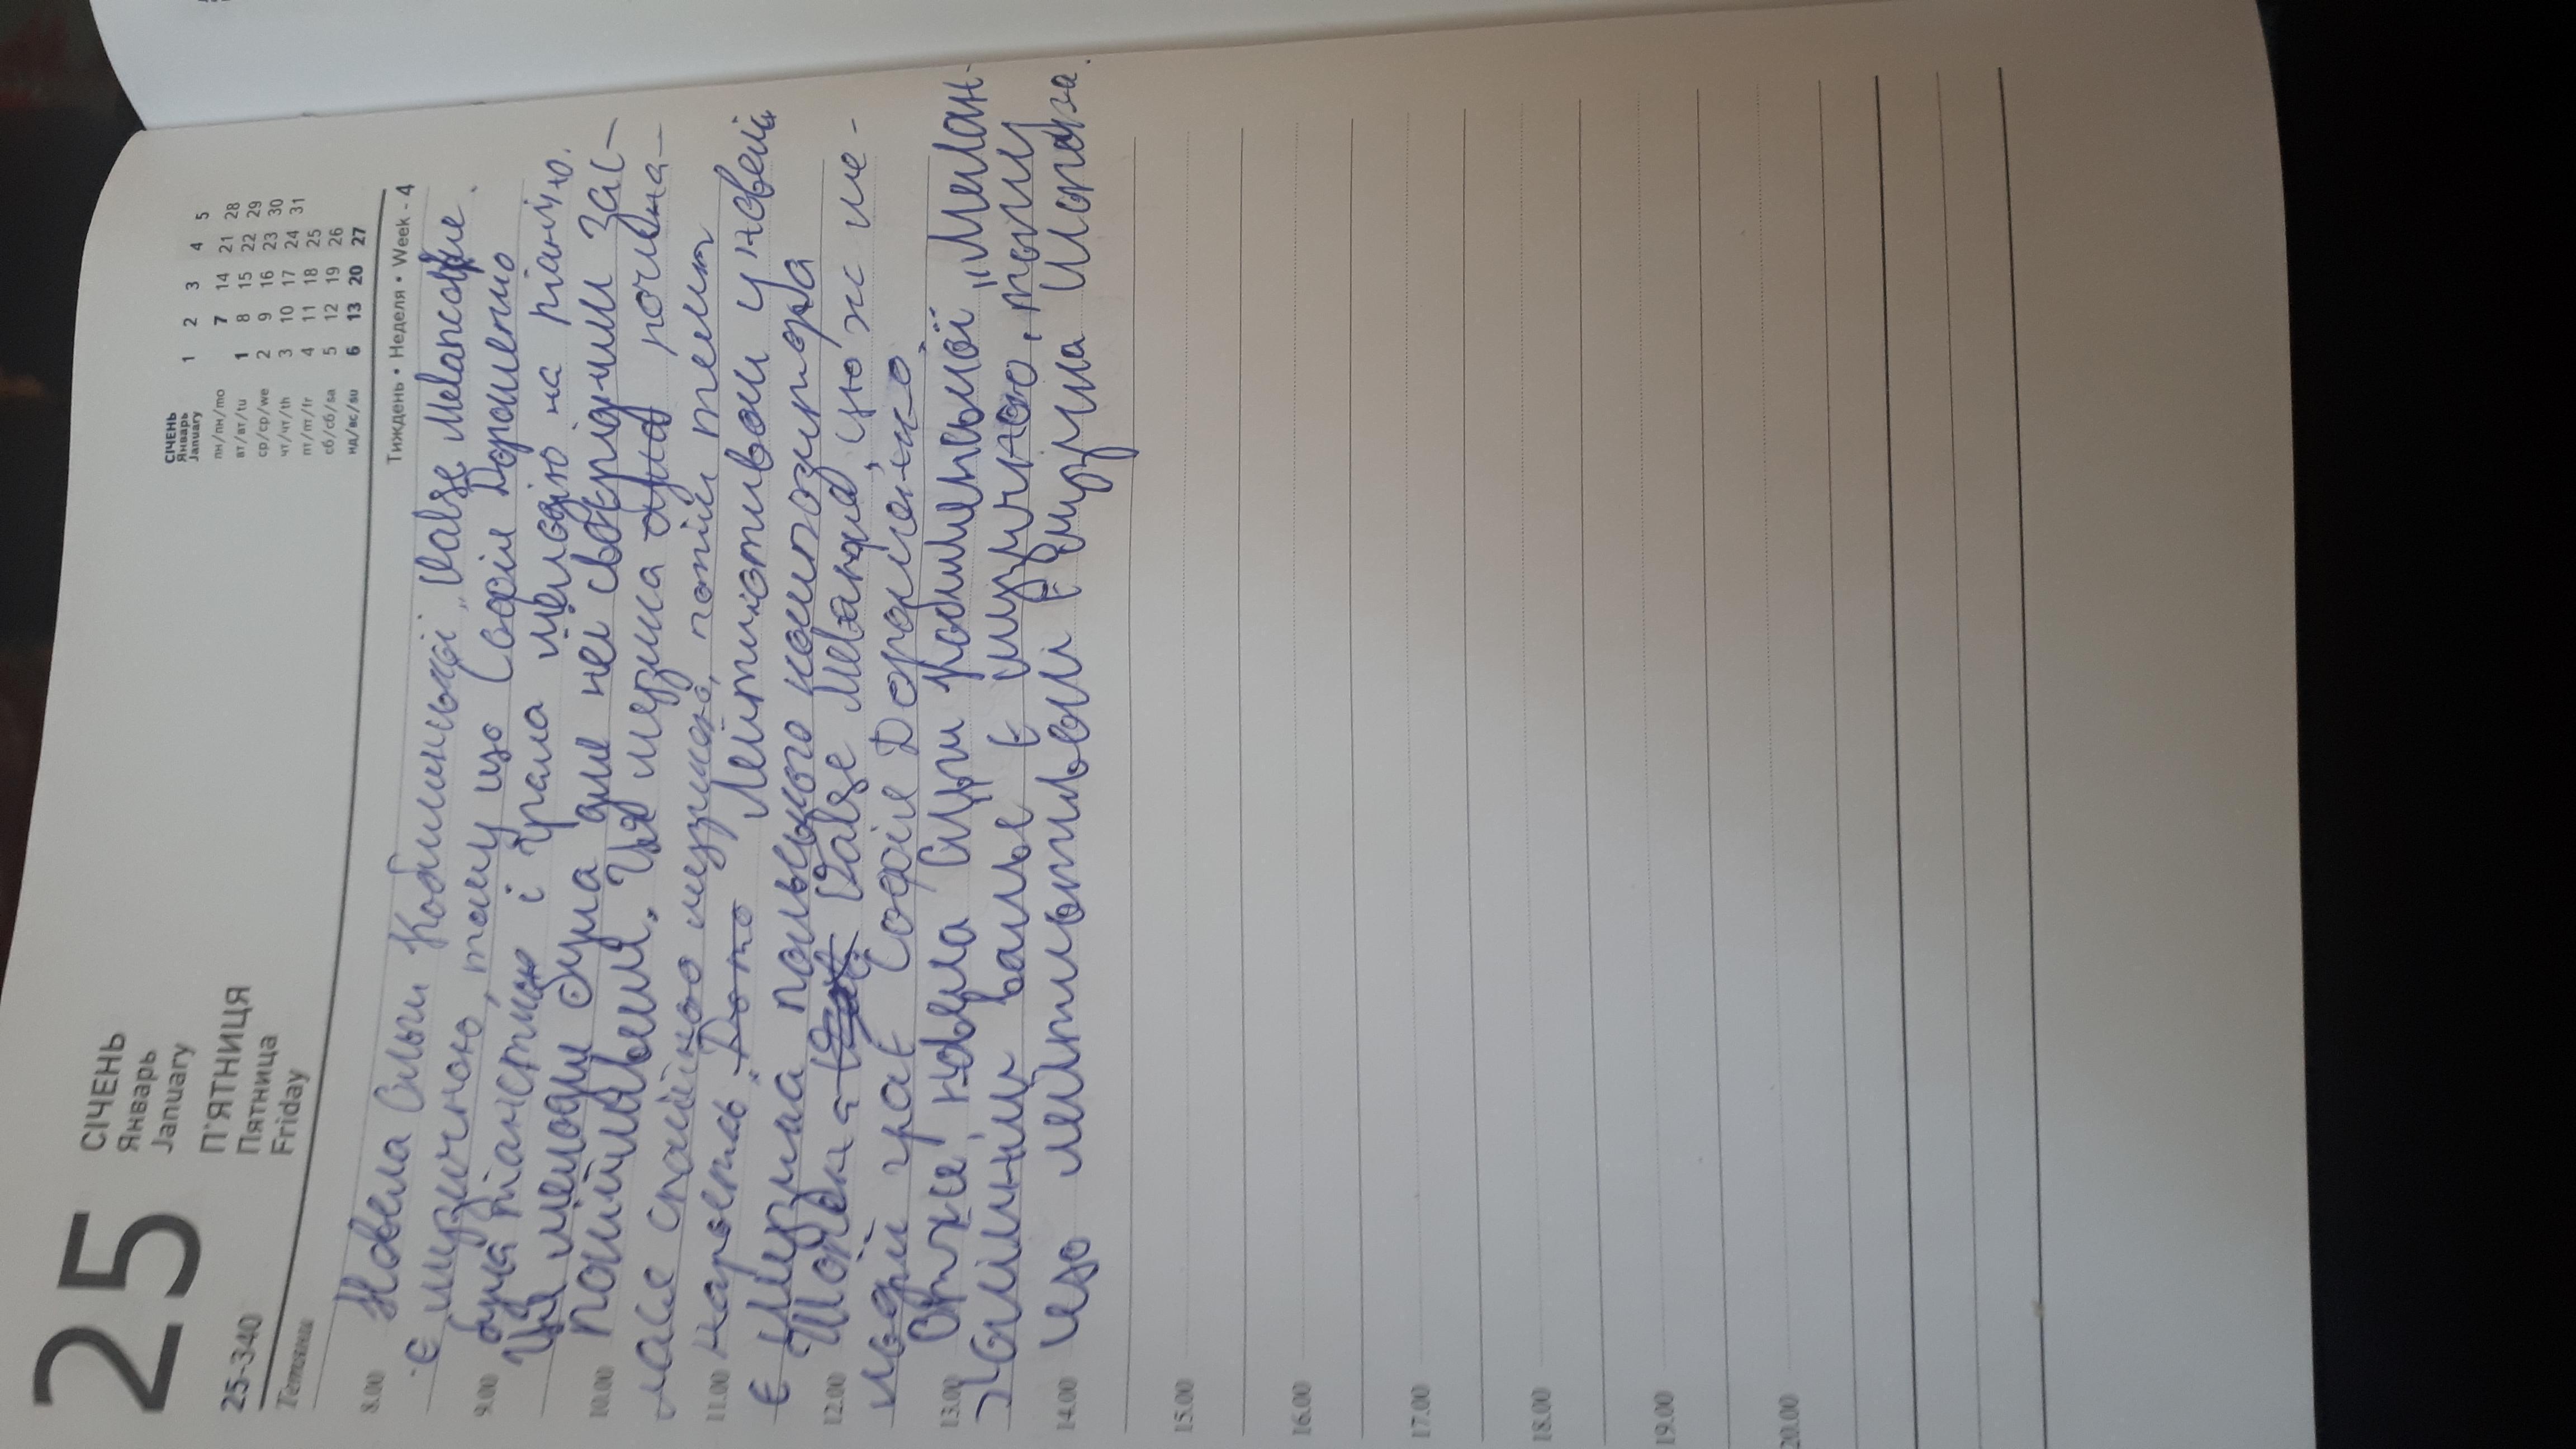 25
СІЧЕНЬ
Январь
January
П'ЯТНИЦЯ
Пятница
Friday
25-340
СІЧЕНЬ
Январь
January
1 2 3 4 5
пн/пн/mo 7 14 21 28
вт/вт/tu 1 8 15 22 29
ср/ср/we 2 9 16 23 30
чт/чт/th 3 10 17 24 31
пт/пт/fr 4 11 18 25
сб/сб/sa 5 12 19 26
нд/вс/su 6 13 20 27
Тиждень • Неделя • Week - 4
8.00
Новела Ольги Кобилянської „Valse Melancolie.
є музичною, тому що Софія Дорошенко
9.00
була піаністкою і грала мелодію на піаніно.
Ця мелодія була для неї своєрідним зас-
10.00
покійливим. Ця музика почина-
лася спокійною музикою, потім темп
11.00
наростав. Лейтмотивом у новелі
є музика польського композитора
12.00
Шопена Valse Melanquе, цю ж ме-
лодію грає Софія Дорошенко.
13.00
Отже, новела Ольги Кобилянської „Мелан-
холійний вальс" є музичною, тому
14.00
що лейтмотивом є музика Шопена.
15.00
16.00
17.00
18.00
19.00
20.00